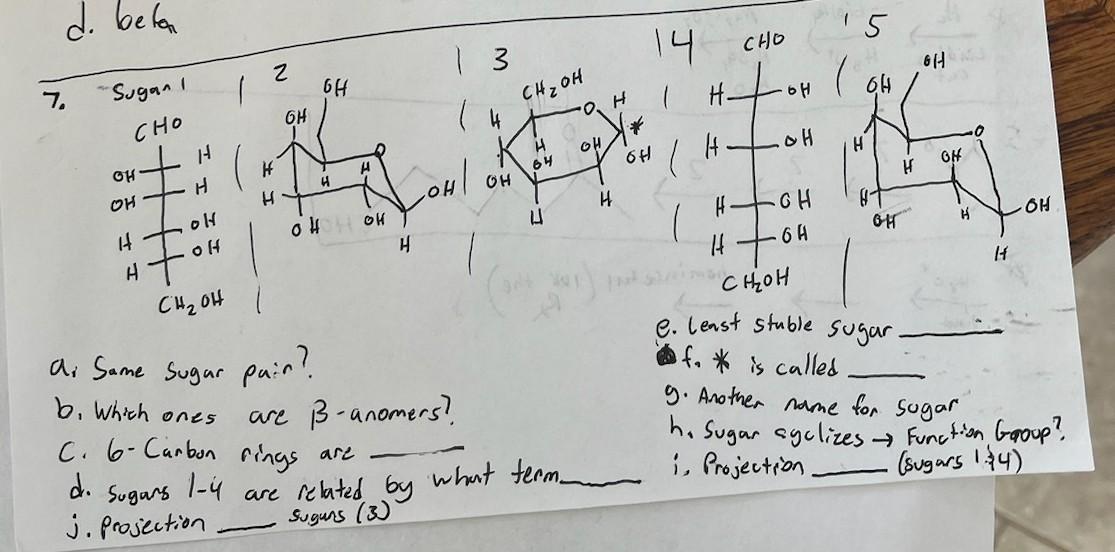 d. beta
7. Sugar 1
CHO
OH H
OH H
H OH
H OH
CH₂OH
2
OH
OH
O
H
H
H
H
OH
OH
OH
H
3
CH₂OH
O
H
H
*
H
OH
OH
OH
OH
H
H
4
CHO
H OH
H OH
H OH
H OH
CH₂OH
5
OH
OH
O
H
H
OH
H
OH
H
OH
H
a. Same sugar pair?
b. Which ones are β-anomers?
c. 6-Carbon rings are ____
d. Sugars 1-4 are related by what term ____
j. Projection ____ sugars (3)
e. least stable sugar ____
f. * is called ____
g. Another name for sugar
h. Sugar cyclizes → Function Group?
i. Projection ____ (sugars 1 & 4)